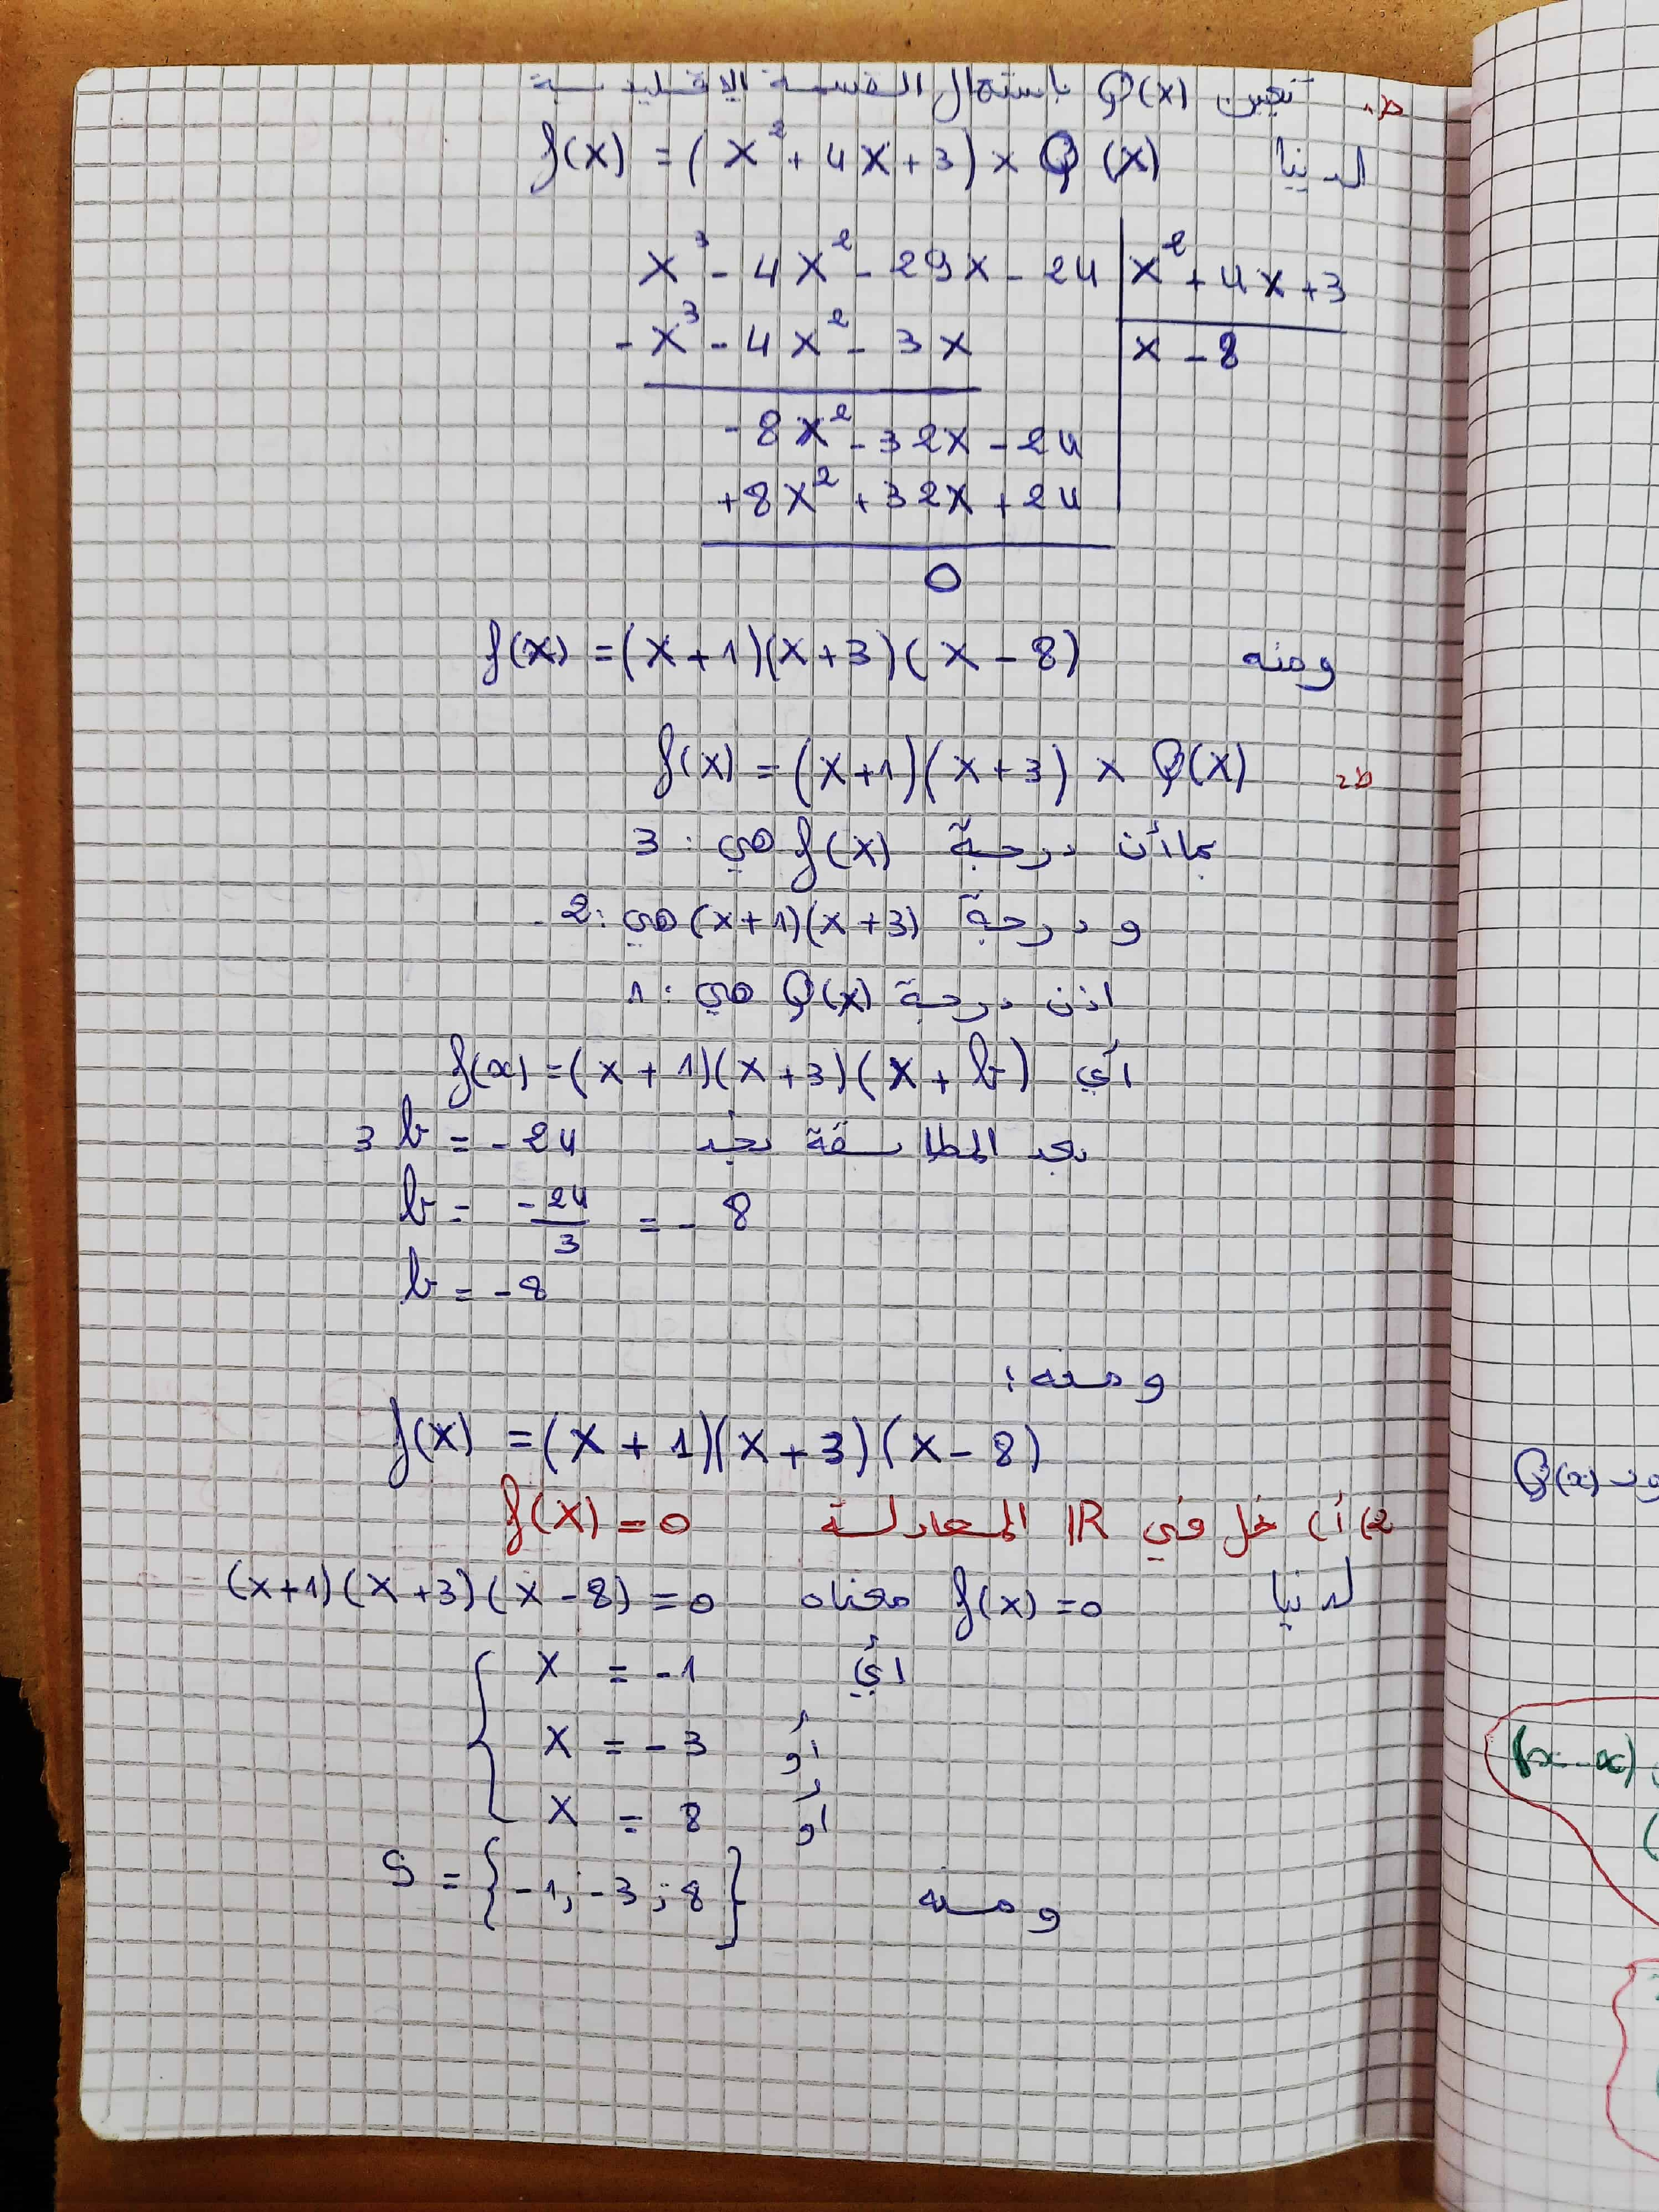 ط1 تعيين Q(x) باستعمال القسمة الاقليدية
لدينا f(x) = (x² + 4x + 3) × Q(x)
x³ - 4x² - 29x - 24 | x² + 4x + 3
-x³ - 4x² - 3x | x - 8
-8x² - 32x - 24
+8x² + 32x + 24
0
ومنه f(x) = (x + 1)(x + 3)(x - 8)
ط2 f(x) = (x+1)(x+3) × Q(x)
بما أن درجة f(x) هي : 3
و درجة (x+1)(x+3) هي : 2
اذن درجة Q(x) هي : 1
أي f(x) = (x + 1)(x + 3)(x + b)
بعد المطابقة نجد 3b = -24
b = -24/3 = -8
b = -8
ومنه :
f(x) = (x + 1)(x + 3)(x - 8)
2) أ) نحل في IR المعادلة f(x) = 0
لدينا f(x) = 0 معناه (x+1)(x+3)(x-8) = 0
أي x = -1
أو x = -3
أو x = 8
ومنه S = {-1; -3; 8}
Q(x)